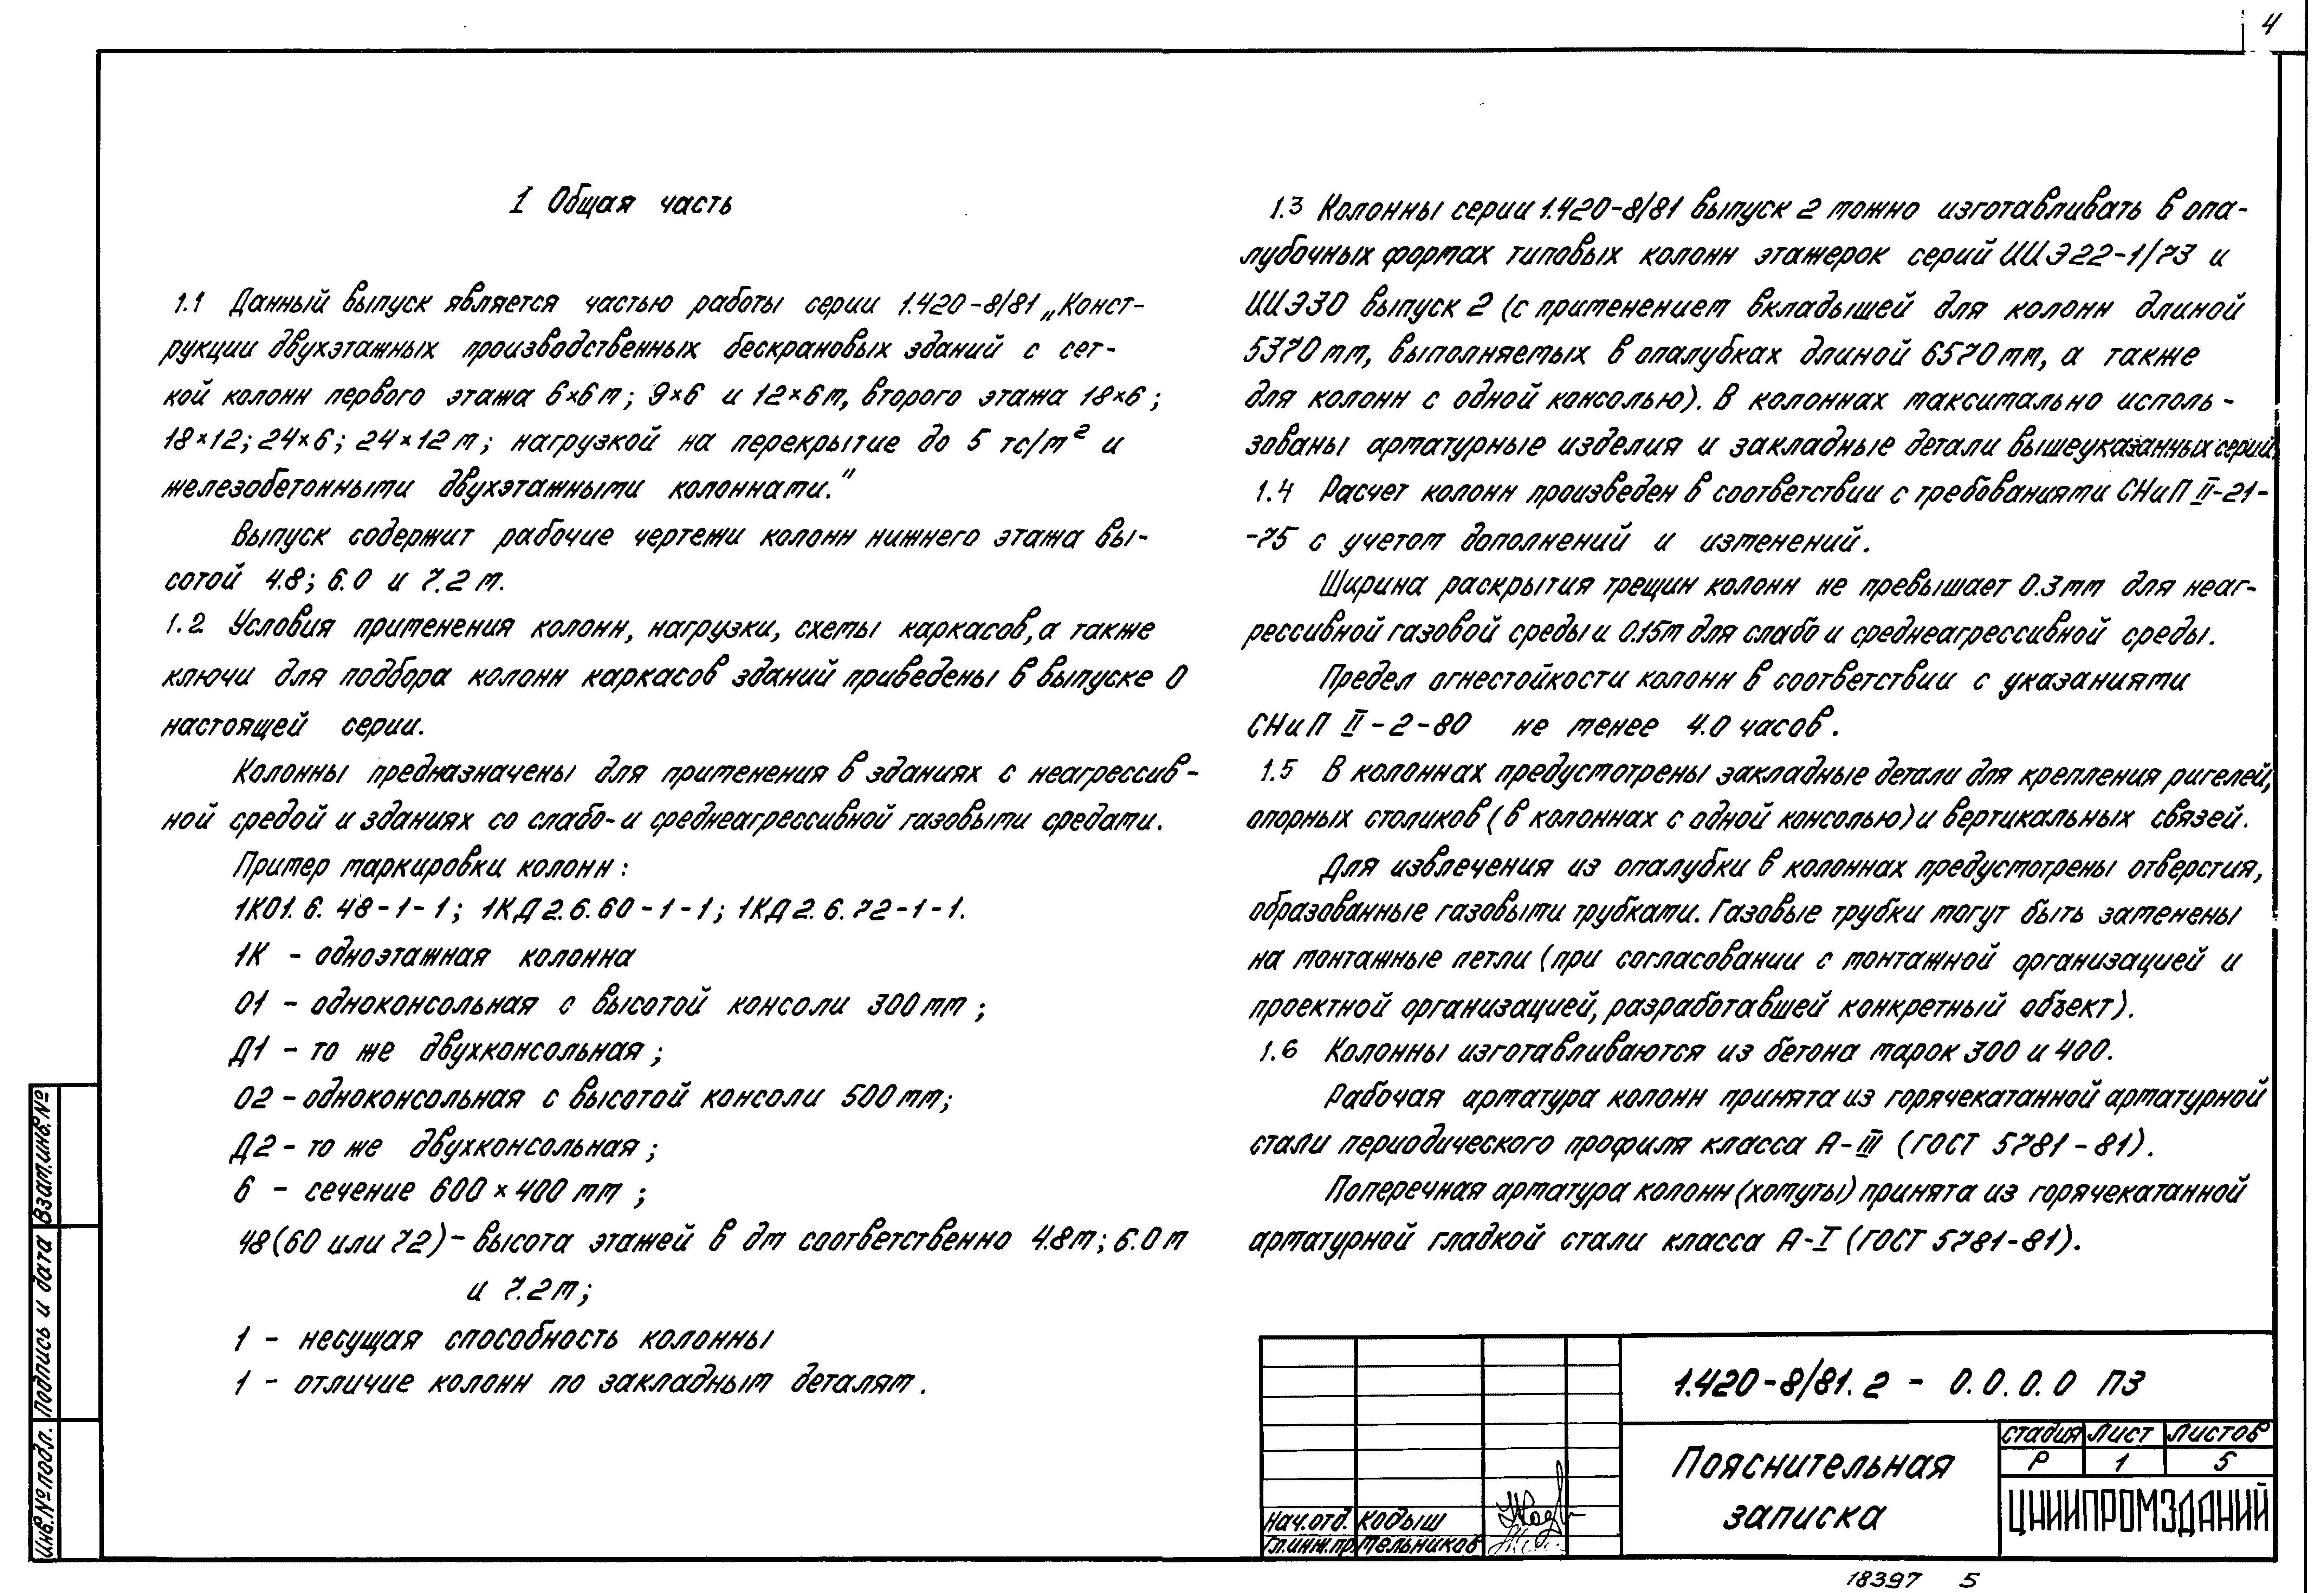 4
1 Общая часть
1.1 Данный выпуск является частью работы серии 1.420-8/81 „Конст-
рукции двухэтажных производственных бескрановых зданий с сет-
кой колонн первого этажа 6×6м; 9×6 и 12×6м, второго этажа 18×6;
18×12; 24×6; 24×12м; нагрузкой на перекрытие до 5 тс/м² и
железобетонными двухэтажными колоннами."
Выпуск содержит рабочие чертежи колонн нижнего этажа вы-
сотой 4.8; 6.0 и 7.2 м.
1.2 Условия применения колонн, нагрузки, схемы каркасов, а также
ключи для подбора колонн каркасов зданий приведены в выпуске 0
настоящей серии.
Колонны предназначены для применения в зданиях с неагрессив-
ной средой и зданиях со слабо- и среднеагрессивной газовыми средами.
Пример маркировки колонн:
1К01.6.48-1-1; 1КД2.6.60-1-1; 1КД2.6.72-1-1.
1К - одноэтажная колонна
01 - одноконсольная с высотой консоли 300мм;
Д1 - то же двухконсольная;
02 - одноконсольная с высотой консоли 500мм;
Д2 - то же двухконсольная;
6 - сечение 600×400 мм;
48(60 или 72) - высота этажей в дм соответственно 4.8м; 6.0м
и 7.2м;
1 - несущая способность колонны
1 - отличие колонн по закладным деталям.
1.3 Колонны серии 1.420-8/81 выпуск 2 можно изготавливать в опа-
лубочных формах типовых колонн этажерок серий ИИЭ22-1/73 и
ИИЭ30 выпуск 2 (с применением вкладышей для колонн длиной
5370мм, выполняемых в опалубках длиной 6570мм, а также
для колонн с одной консолью). В колоннах максимально исполь-
зованы арматурные изделия и закладные детали вышеуказанных серий.
1.4 Расчет колонн произведен в соответствии с требованиями СНиП II-21-
-75 с учетом дополнений и изменений.
Ширина раскрытия трещин колонн не превышает 0.3мм для неаг-
рессивной газовой среды и 0.15м для слабо и среднеагрессивной среды.
Предел огнестойкости колонн в соответствии с указаниями
СНиП II-2-80 не менее 4.0 часов.
1.5 В колоннах предусмотрены закладные детали для крепления ригелей,
опорных столиков (в колоннах с одной консолью) и вертикальных связей.
Для извлечения из опалубки в колоннах предусмотрены отверстия,
образованные газовыми трубками. Газовые трубки могут быть заменены
на монтажные петли (при согласовании с монтажной организацией и
проектной организацией, разработавшей конкретный объект).
1.6 Колонны изготавливаются из бетона марок 300 и 400.
Рабочая арматура колонн принята из горячекатанной арматурной
стали периодического профиля класса А-III (ГОСТ 5781-81).
Поперечная арматура колонн (хомуты) принята из горячекатанной
арматурной гладкой стали класса А-I (ГОСТ 5781-81).
Взам.инв.№
Подпись и дата
Инв.№ подл.
1.420-8/81.2 - 0.0.0.0 ПЗ
Пояснительная
записка
стадия Лист Листов
Р 1 5
ЦНИИПРОМЗДАНИЙ
Нач.отд. Кодыш
Гл.инж.пр. Мельников
18397 5